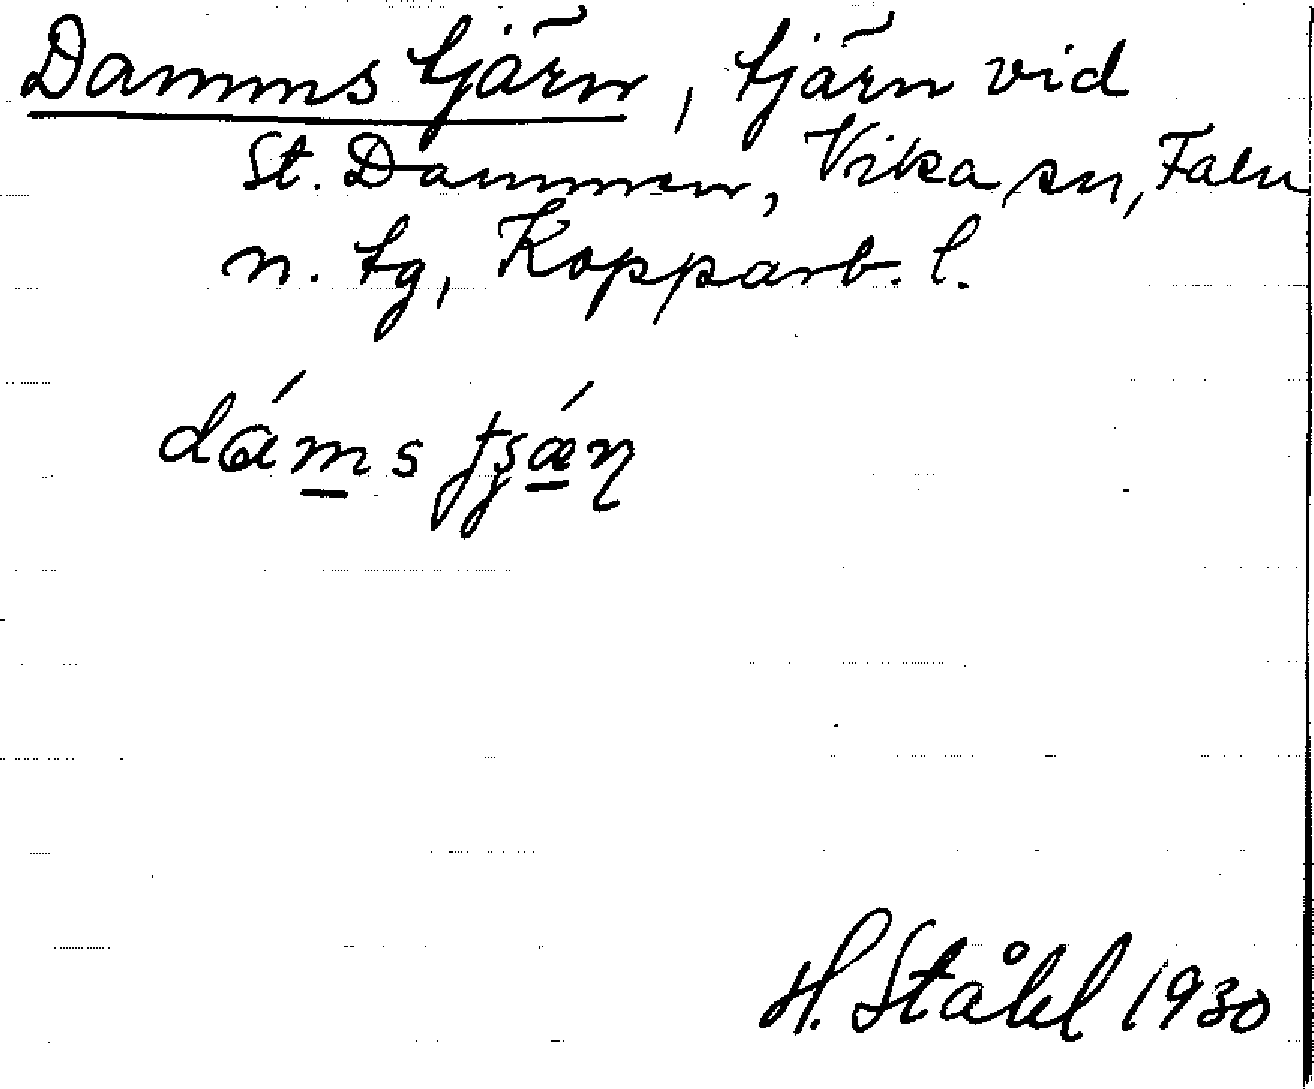 Damms tjärn, tjärn vid
St. Dammen, Vika sn, Falu
n. tg, Kopparb. l.
dáms
H. Ståhl 1930